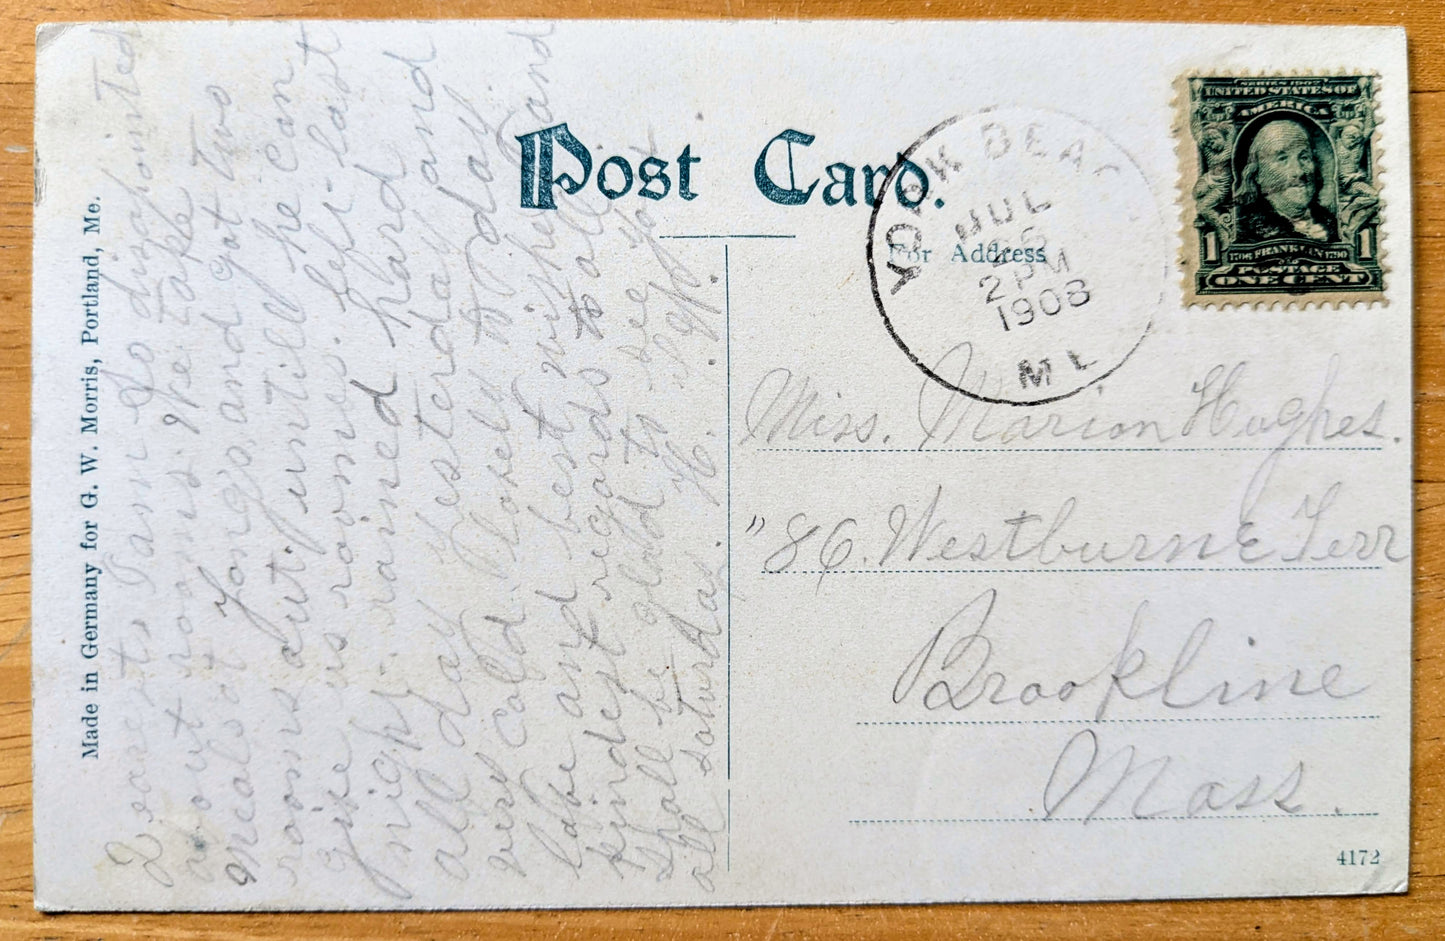 Made in Germany for G. W. Morris, Portland, Me.
Dearest I am So disapointed
about rooms. We take
meals at Young's, and got two
rooms out, untill he can
give us rooms.
night. rained hard
all day yesterday, and
very cold.
love and best wishes and
kindest regards to all.
Shall be glad to see you
all saturday. H. W.
Post Card.
For Address
YORK BEAC
JUL
26
2 PM
1908
ME
SERIES 1902
UNITED STATES OF
AMERICA
1706 FRANKLIN 1790
1 1
POSTAGE
ONE CENT
Miss. Marion Hughes.
"86. Westburne Terr
Brookline
Mass.
4172